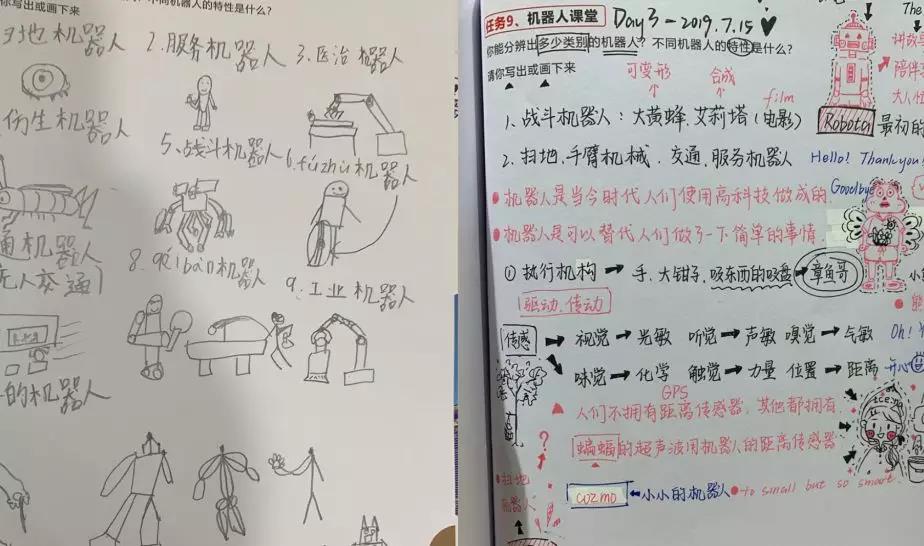 不同机器人的特性是什么?
你写出或画下来
扫地机器人 2.服务机器人 3.医治机器人
仿生机器人
5、战斗机器人 6.fúzhù机器人
通机器人
无人交通
8.péibàn机器人
9.工业机器人
的机器人
任务9、机器人课堂 Day3-2019.7.15
The
你能分辨出多少类别的机器人?不同机器人的特性是什么?
请你写出或画下来
可变形 合成
陪伴
film
大小
1、战斗机器人:大黄蜂、艾莉塔(电影)
Robota 最初的
2、扫地、手臂机械、交通、服务机器人 Hello! Thankyou!
Goodbye
机器人是当今时代人们使用高科技做成的.
机器人是可以替代人们做了一下简单的事情.
①执行机构→手、大钳子、吸东西的吸盘→章鱼哥
驱动、传动
传感→视觉→光敏 听觉→声敏 嗅觉→气敏 Oh!
味觉→化学 触觉→力量 位置→距离 开心
GPS
人们不拥有距离传感器,其他都拥有.
蝙蝠的超声波用机器人的距离传感器
扫地
机器人
cozmo ←小小的机器人 to small but so smart